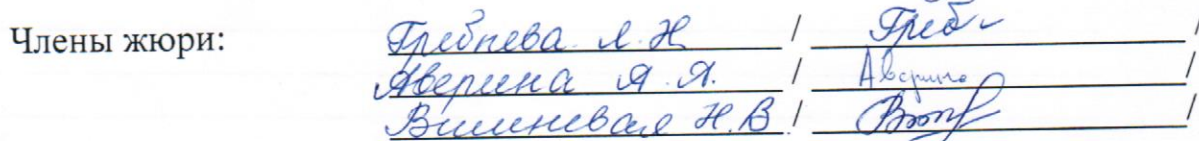 Члены жюри: Гребнева Л. Н / Греб /
Аверина А. Я. / Аверина /
Вишневая Н. В / /